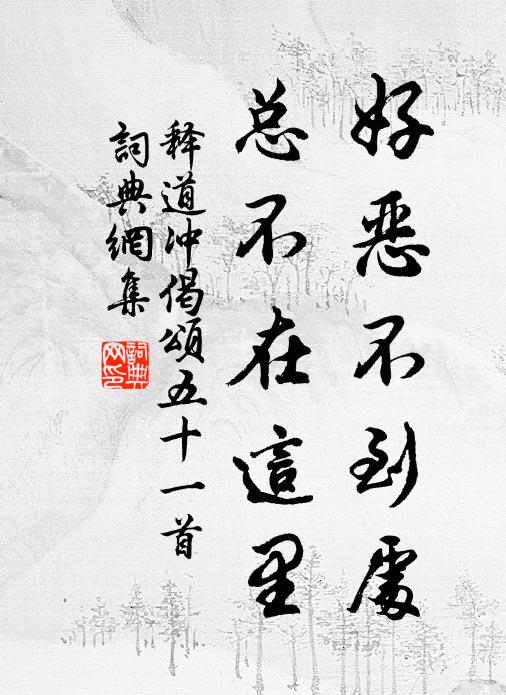 好恶不到處
总不在這里
释道冲偈頌五十一首
詞典網集
詞典网印